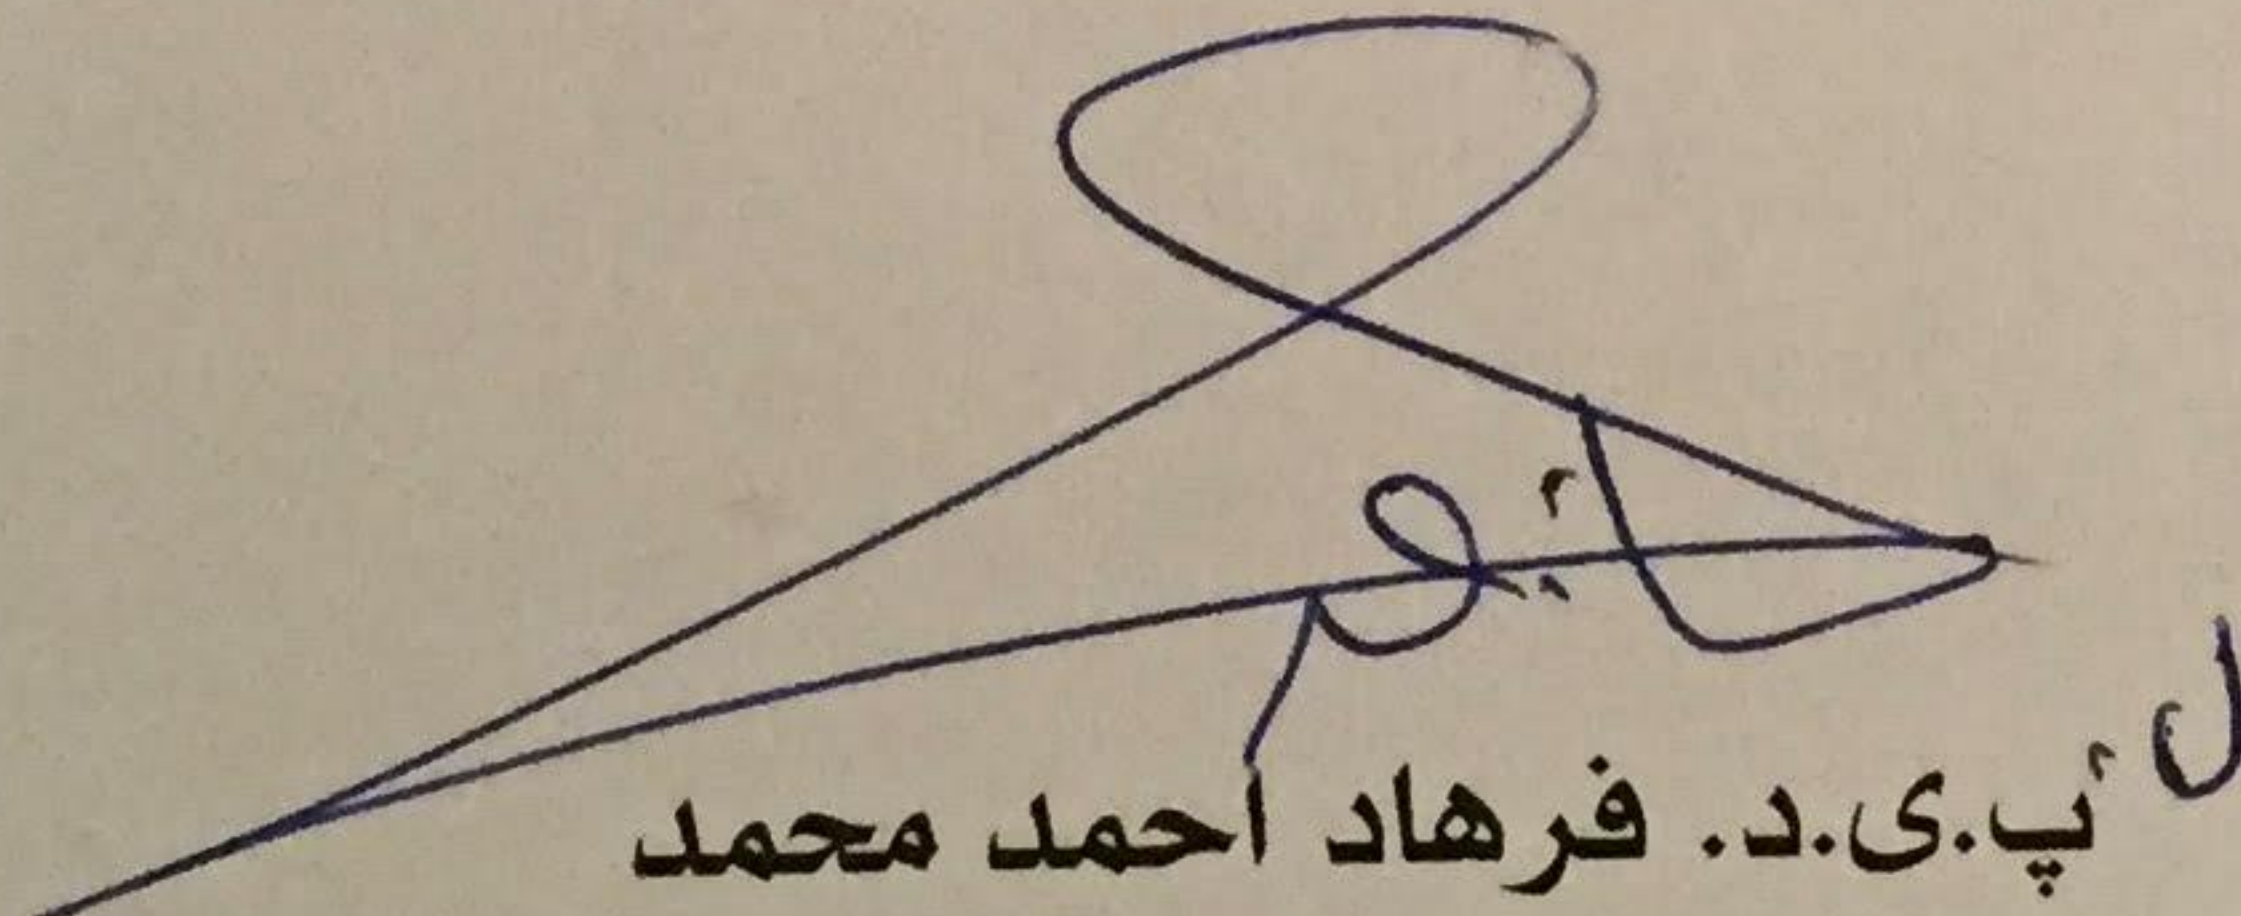 پ.ی.د. فرهاد احمد محمد